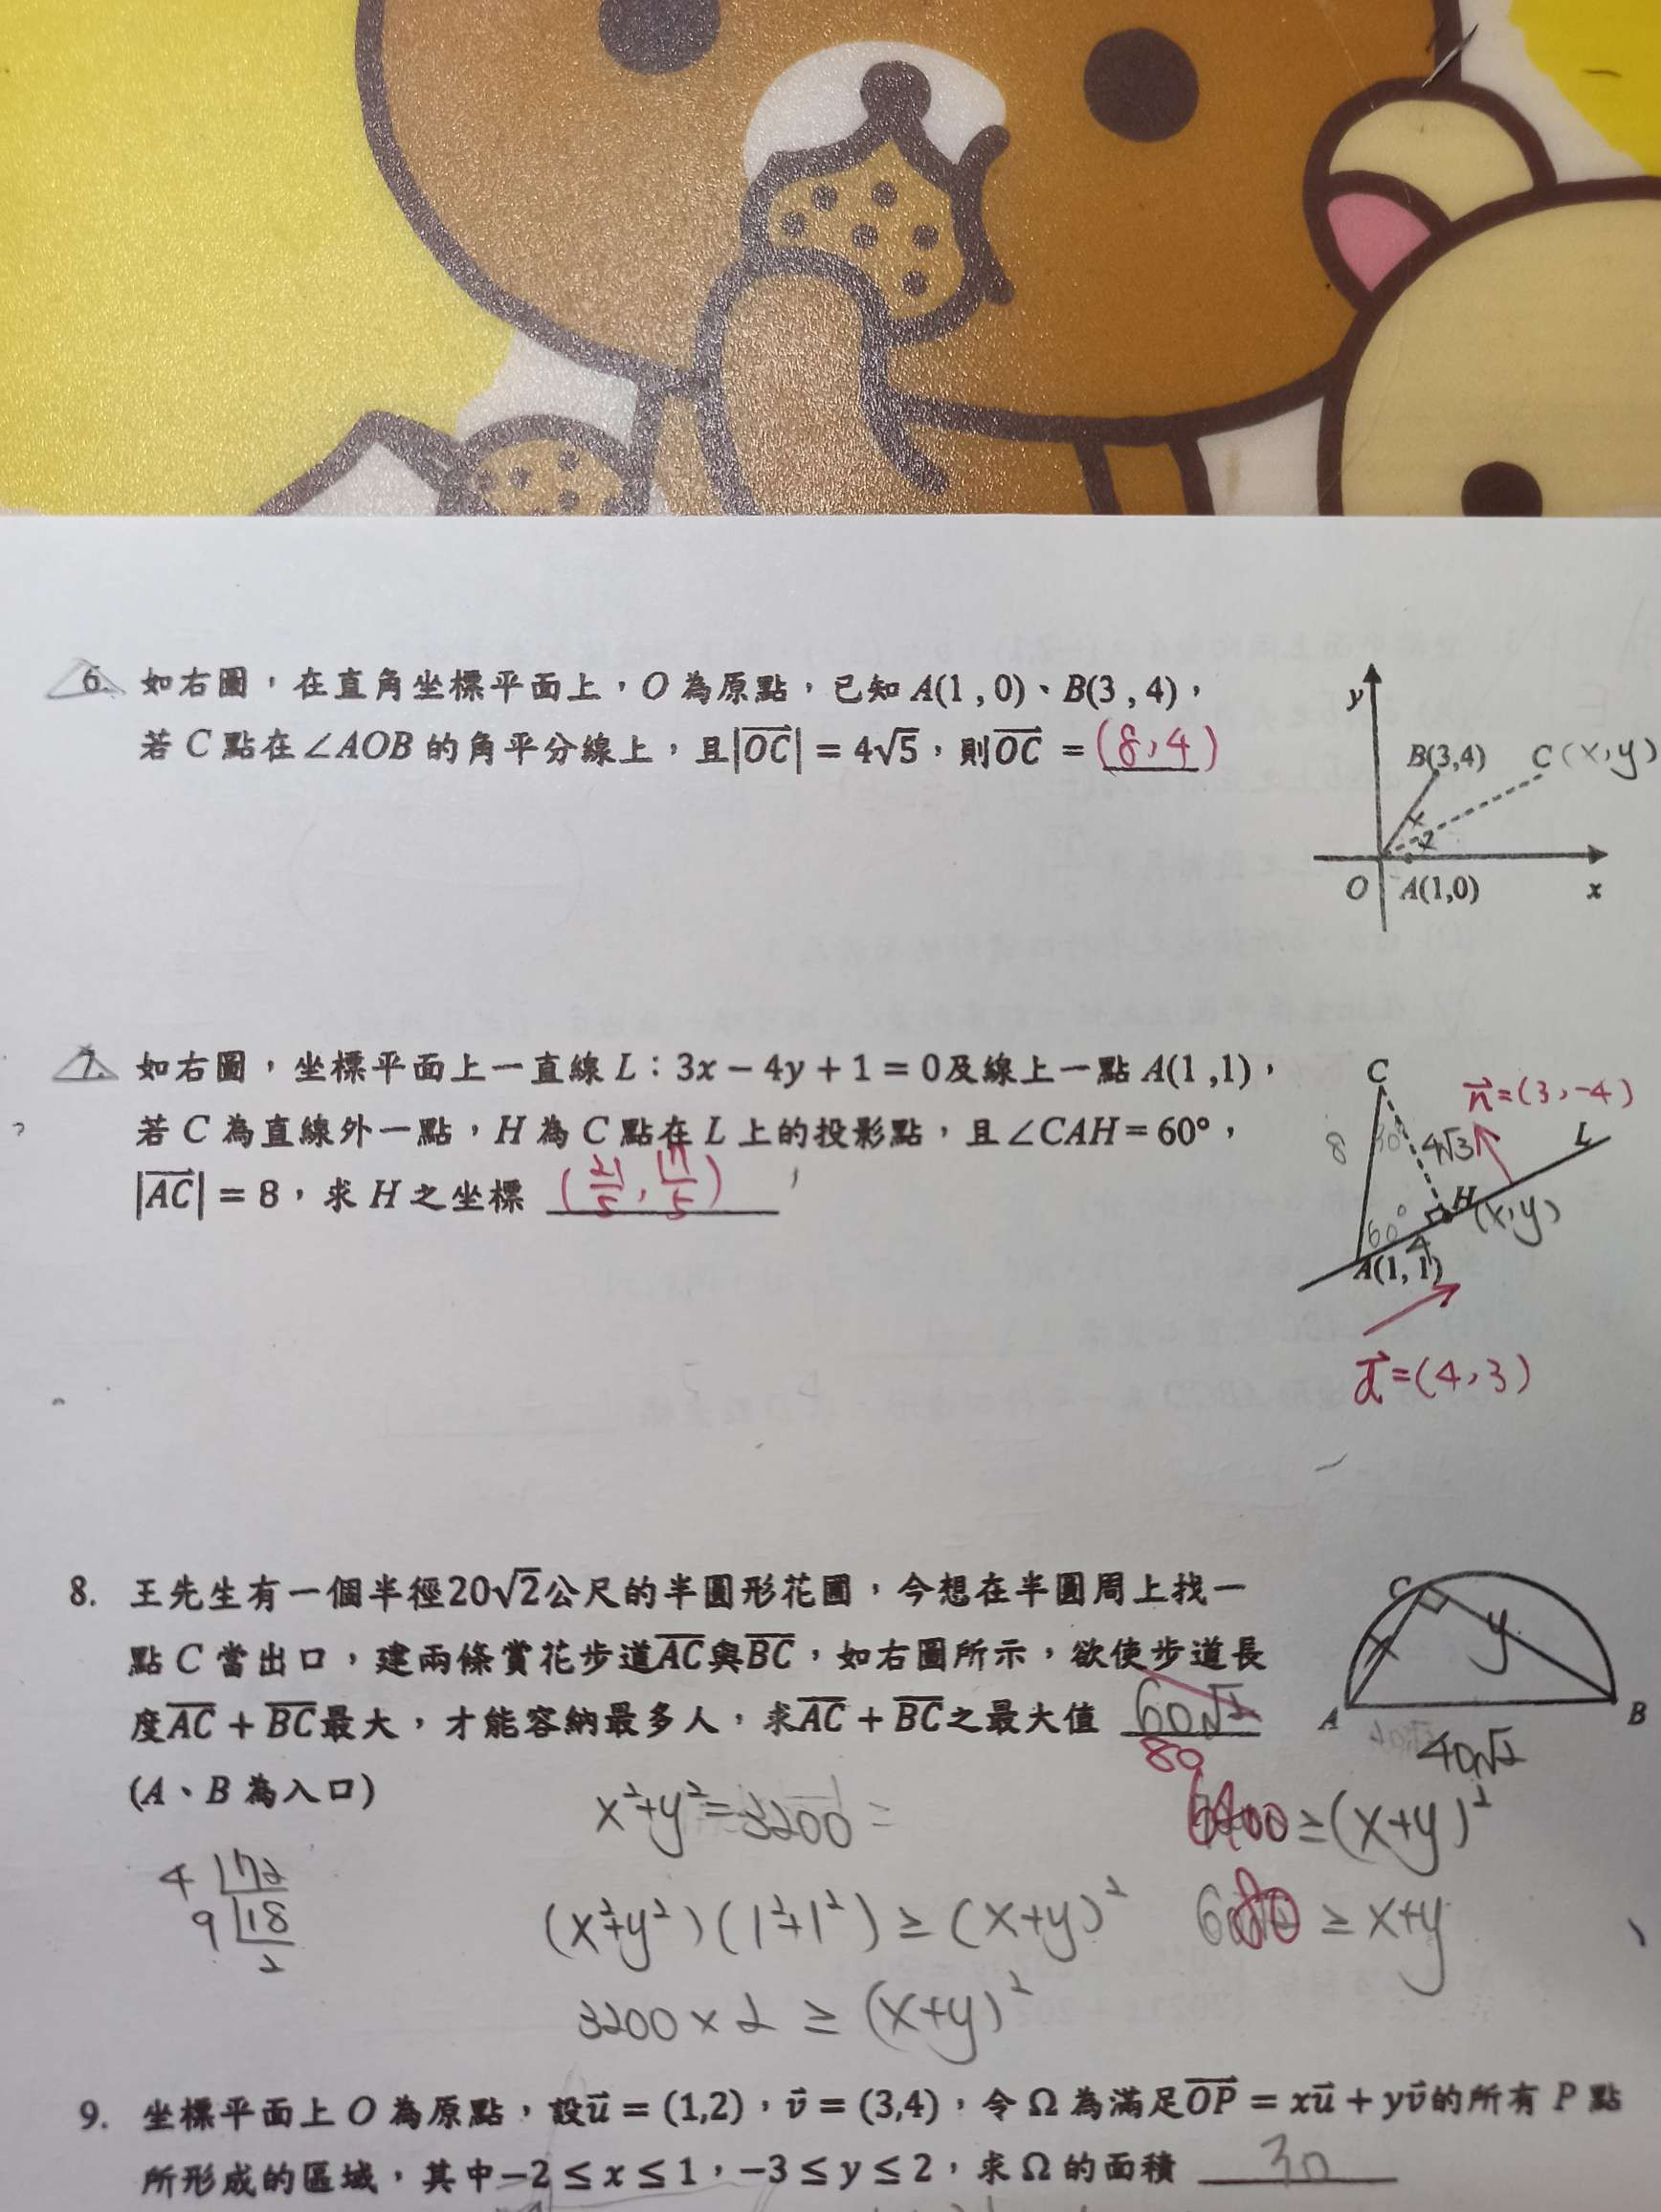 6. 如右圖，在直角坐標平面上，O 為原點，已知 A(1 , 0)、B(3 , 4)，
若 C 點在∠AOB 的角平分線上，且|OC| = 4√5，則OC = (8,4)
y
B(3,4) C(x,y)
O A(1,0) x
7. 如右圖，坐標平面上一直線 L：3x − 4y + 1 = 0及線上一點 A(1 ,1)，
若 C 為直線外一點，H 為 C 點在 L 上的投影點，且∠CAH = 60°，
|AC| = 8，求 H 之坐標 (21/5, 17/5)
C n=(3,-4)
8 30° 4√3 L
H(x,y)
60° 4
A(1, 1)
d=(4,3)
8. 王先生有一個半徑20√2公尺的半圓形花圃，今想在半圓周上找一
點 C 當出口，建兩條賞花步道AC與BC，如右圖所示，欲使步道長
度AC + BC最大，才能容納最多人，求AC + BC之最大值 60√2
80
(A、B 為入口)
C
x y
A B
40√2
x²+y²=3200=
6400≥(x+y)²
4 72
9 18
2
(x²+y²)(1²+1²)≥(x+y)²
80≥x+y
3200×2≥(x+y)²
9. 坐標平面上 O 為原點，設u = (1,2)，v = (3,4)，令 Ω 為滿足OP = xu + yv的所有 P 點
所形成的區域，其中−2 ≤ x ≤ 1，−3 ≤ y ≤ 2，求 Ω 的面積 30